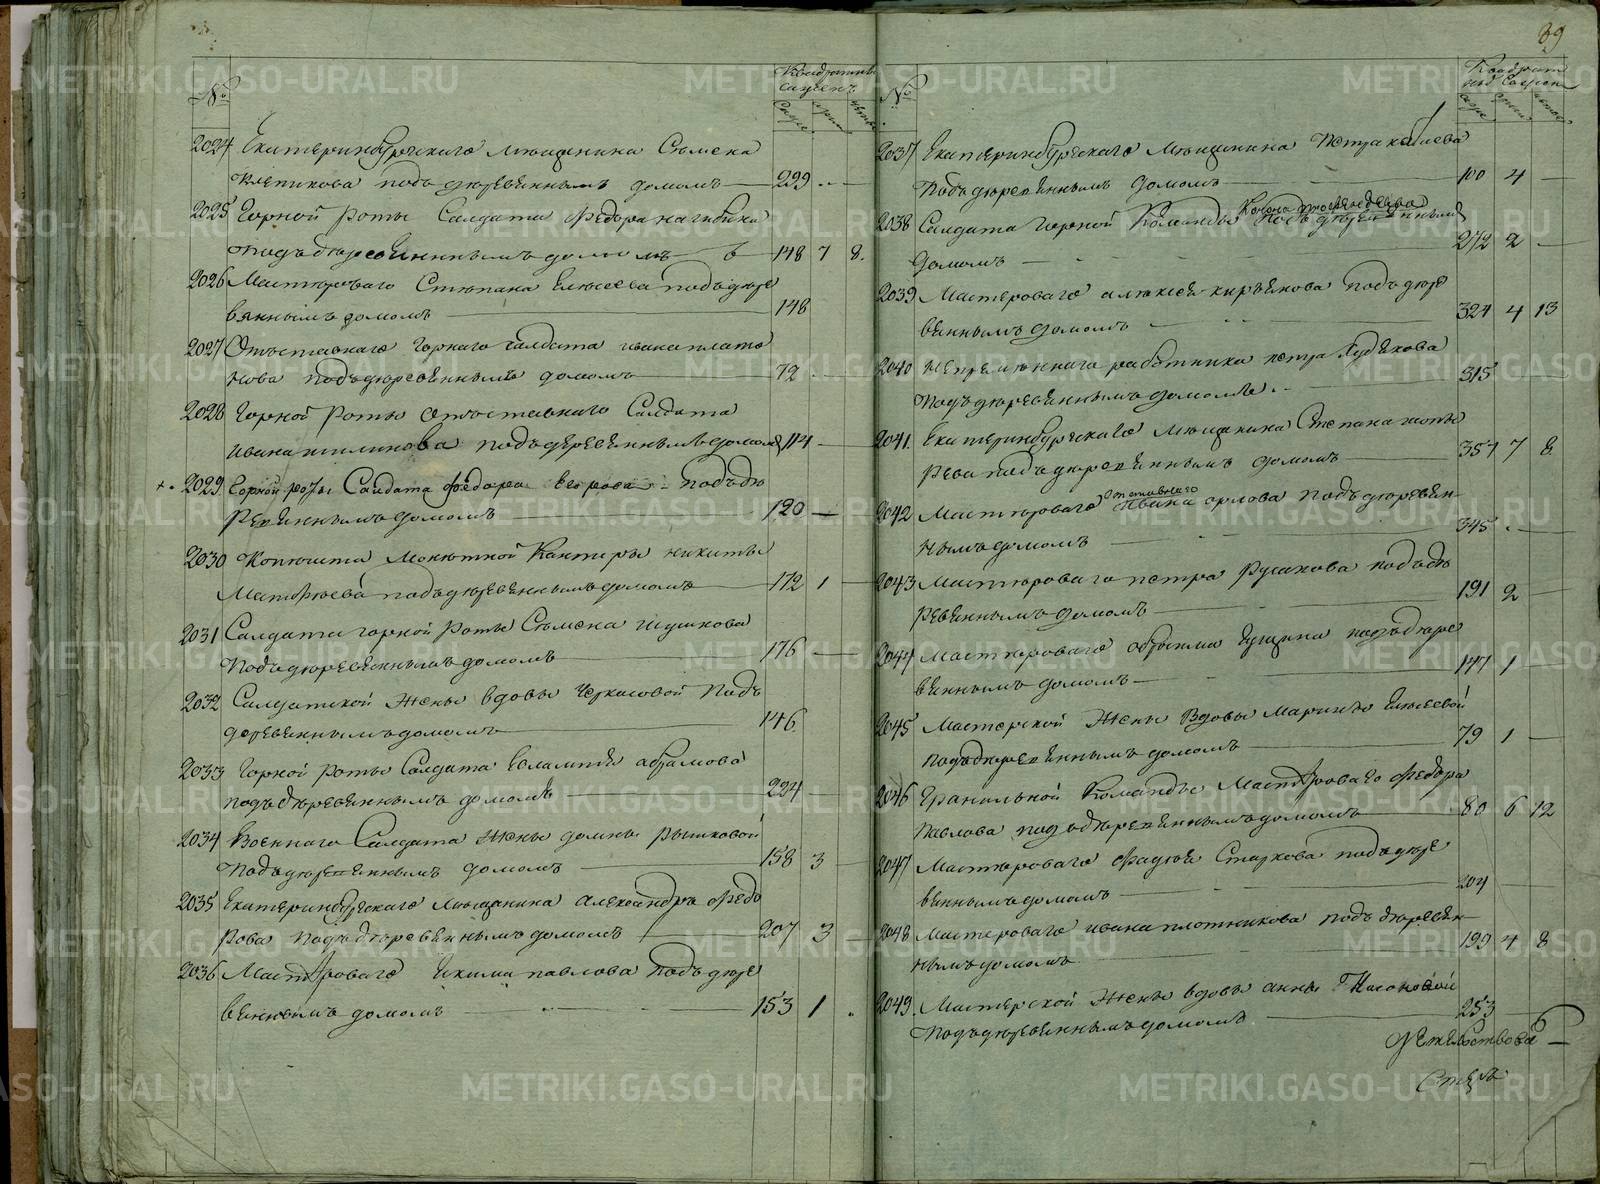 №
Квадратныхъ
сажень
Саже. арш. четв.
2024 Екатеринбургскаго мѣщанина Сѣмена
Клепикова подъ дюревяннымъ домомъ 299
2025 Горной роты Салдата Федора нагибина
подъ дюревяннымъ домомъ 148 7 8.
2026 Мастюроваго Стюпана Елюсеева подъ дюре
вяннымъ домомъ 148
2027 Отъставнаго Горнаго салдата ивана плато
нова подъ дюревяннымъ домомъ 72
2028 Горной роты отъставнаго Салдата
ивана подъ деревяннымъ домомъ 114
2029 Горной роты Салдата федора подъ дю
ревяннымъ домомъ 120
2030 Копюиста Монютной Канторы никиты
Матфюева подъ дюревяннымъ домомъ 172 1
2031 Салдата горной роты Сѣмена глушкова
подъ дюревяннымъ домомъ 176
2032 Салдатской Жены вдовы Черкасовой подъ
деревяннымъ домомъ 146
2033 Горной роты Салдата Евлампия абрамова
подъ дюревяннымъ домомъ 224
2034 Военнаго Салдата Жены домны рышковой
подъ дюревяннымъ домомъ 158 3
2035 Екатеринбургскаго мющанина александра Федо
рова подъ дюревяннымъ домомъ 207 3
2036 Мастюроваго Екима павлова подъ дюре
вяннымъ домомъ 153 1
39
№
Квадрат
ныхъ Сажен
саже арши четв
2037 Екатеринбургскаго мѣщанина Петра
подъ дюревяннымъ домомъ 100 4
2038 Салдата горной Команды подъ дюревяннымъ
домомъ 272 2
2039 Мастероваго алѫксея кирьянова подъ дюре
вяннымъ домомъ 324 4 13
2040 непремюннаго работника петра Худякова
подъ дюревяннымъ домомъ 315
2041. Екатеринбургскаго мющанина Степана
рева подъ дюревяннымъ домомъ 357 7 8
отставнаго
2042 Мастюроваго ивана орлова подъ дюревян
нымъ домомъ 345
2043 Мастюроваго петра Русакова подъ дю
ревяннымъ домомъ 191 2
2044 Мастюроваго ефима Гущина подъ дюре
вяннымъ домомъ 147 1
2045 Мастерской Жены Вдовы Марины Елюсеевой
подъ дюревяннымъ домомъ 79 1
2046 Гранильной Команды Мастюроваго Федора
павлова подъ дюревяннымъ домомъ 80 6 12
2047 Мастюроваго Фадюя Старкова подъ дюре
вяннымъ домомъ 204
2048 Мастероваго ивана плотникова подъ дюревян
нымъ домомъ 199 4 8
2049. Мастерской Жены вдовы анны
подъ дюревяннымъ домомъ 253
METRIKI.GASO-URAL.RU